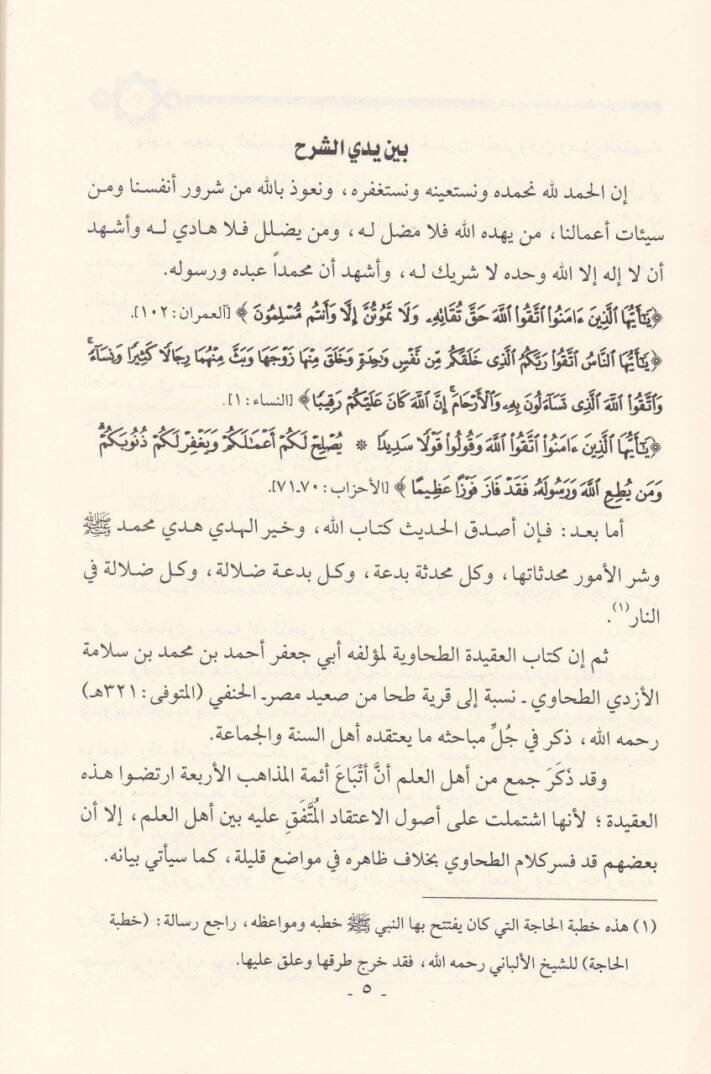 بين يدي الشرح
إن الحمد لله نحمده ونستعينه ونستغفره، ونعوذ بالله من شرور أنفسنا ومن
سيئات أعمالنا، من يهده الله فلا مضل له، ومن يضلل فلا هادي له وأشهد
أن لا إله إلا الله وحده لا شريك له، وأشهد أن محمداً عبده ورسوله.
﴿يَٰٓأَيُّهَا ٱلَّذِينَ ءَامَنُوا۟ ٱتَّقُوا۟ ٱللَّهَ حَقَّ تُقَاتِهِۦ وَلَا تَمُوتُنَّ إِلَّا وَأَنتُم مُّسْلِمُونَ﴾ [آلعمران: ١٠٢].
﴿يَٰٓأَيُّهَا ٱلنَّاسُ ٱتَّقُوا۟ رَبَّكُمُ ٱلَّذِى خَلَقَكُم مِّن نَّفْسٍ وَٰحِدَةٍ وَخَلَقَ مِنْهَا زَوْجَهَا وَبَثَّ مِنْهُمَا رِجَالًا كَثِيرًا وَنِسَآءً ۚ
وَٱتَّقُوا۟ ٱللَّهَ ٱلَّذِى تَسَآءَلُونَ بِهِۦ وَٱلْأَرْحَامَ ۚ إِنَّ ٱللَّهَ كَانَ عَلَيْكُمْ رَقِيبًا﴾ [النساء: ١].
﴿يَٰٓأَيُّهَا ٱلَّذِينَ ءَامَنُوا۟ ٱتَّقُوا۟ ٱللَّهَ وَقُولُوا۟ قَوْلًا سَدِيدًا * يُصْلِحْ لَكُمْ أَعْمَٰلَكُمْ وَيَغْفِرْ لَكُمْ ذُنُوبَكُمْ ۗ
وَمَن يُطِعِ ٱللَّهَ وَرَسُولَهُۥ فَقَدْ فَازَ فَوْزًا عَظِيمًا﴾ [الأحزاب: ٧٠ـ٧١].
أما بعد: فإن أصدق الحديث كتاب الله، وخير الهدي هدي محمد ﷺ
وشر الأمور محدثاتها، وكل محدثة بدعة، وكل بدعة ضلالة، وكل ضلالة في
النار(١).
ثم إن كتاب العقيدة الطحاوية لمؤلفه أبي جعفر أحمد بن محمد بن سلامة
الأزدي الطحاوي ـ نسبة إلى قرية طحا من صعيد مصرـ الحنفي (المتوفى: ٣٢١هـ)
رحمه الله، ذكر في جُلِّ مباحثه ما يعتقده أهل السنة والجماعة.
وقد ذَكَرَ جمع من أهل العلم أنَّ أتْبَاعَ أئمة المذاهب الأربعة ارتضوا هذه
العقيدة؛ لأنها اشتملت على أصول الاعتقاد المُتَّفَقِ عليه بين أهل العلم، إلا أن
بعضهم قد فسر كلام الطحاوي بخلاف ظاهره في مواضع قليلة، كما سيأتي بيانه.
(١) هذه خطبة الحاجة التي كان يفتتح بها النبي ﷺ خطبه ومواعظه، راجع رسالة: (خطبة
الحاجة) للشيخ الألباني رحمه الله، فقد خرج طرقها وعلق عليها.
ـ ٥ ـ